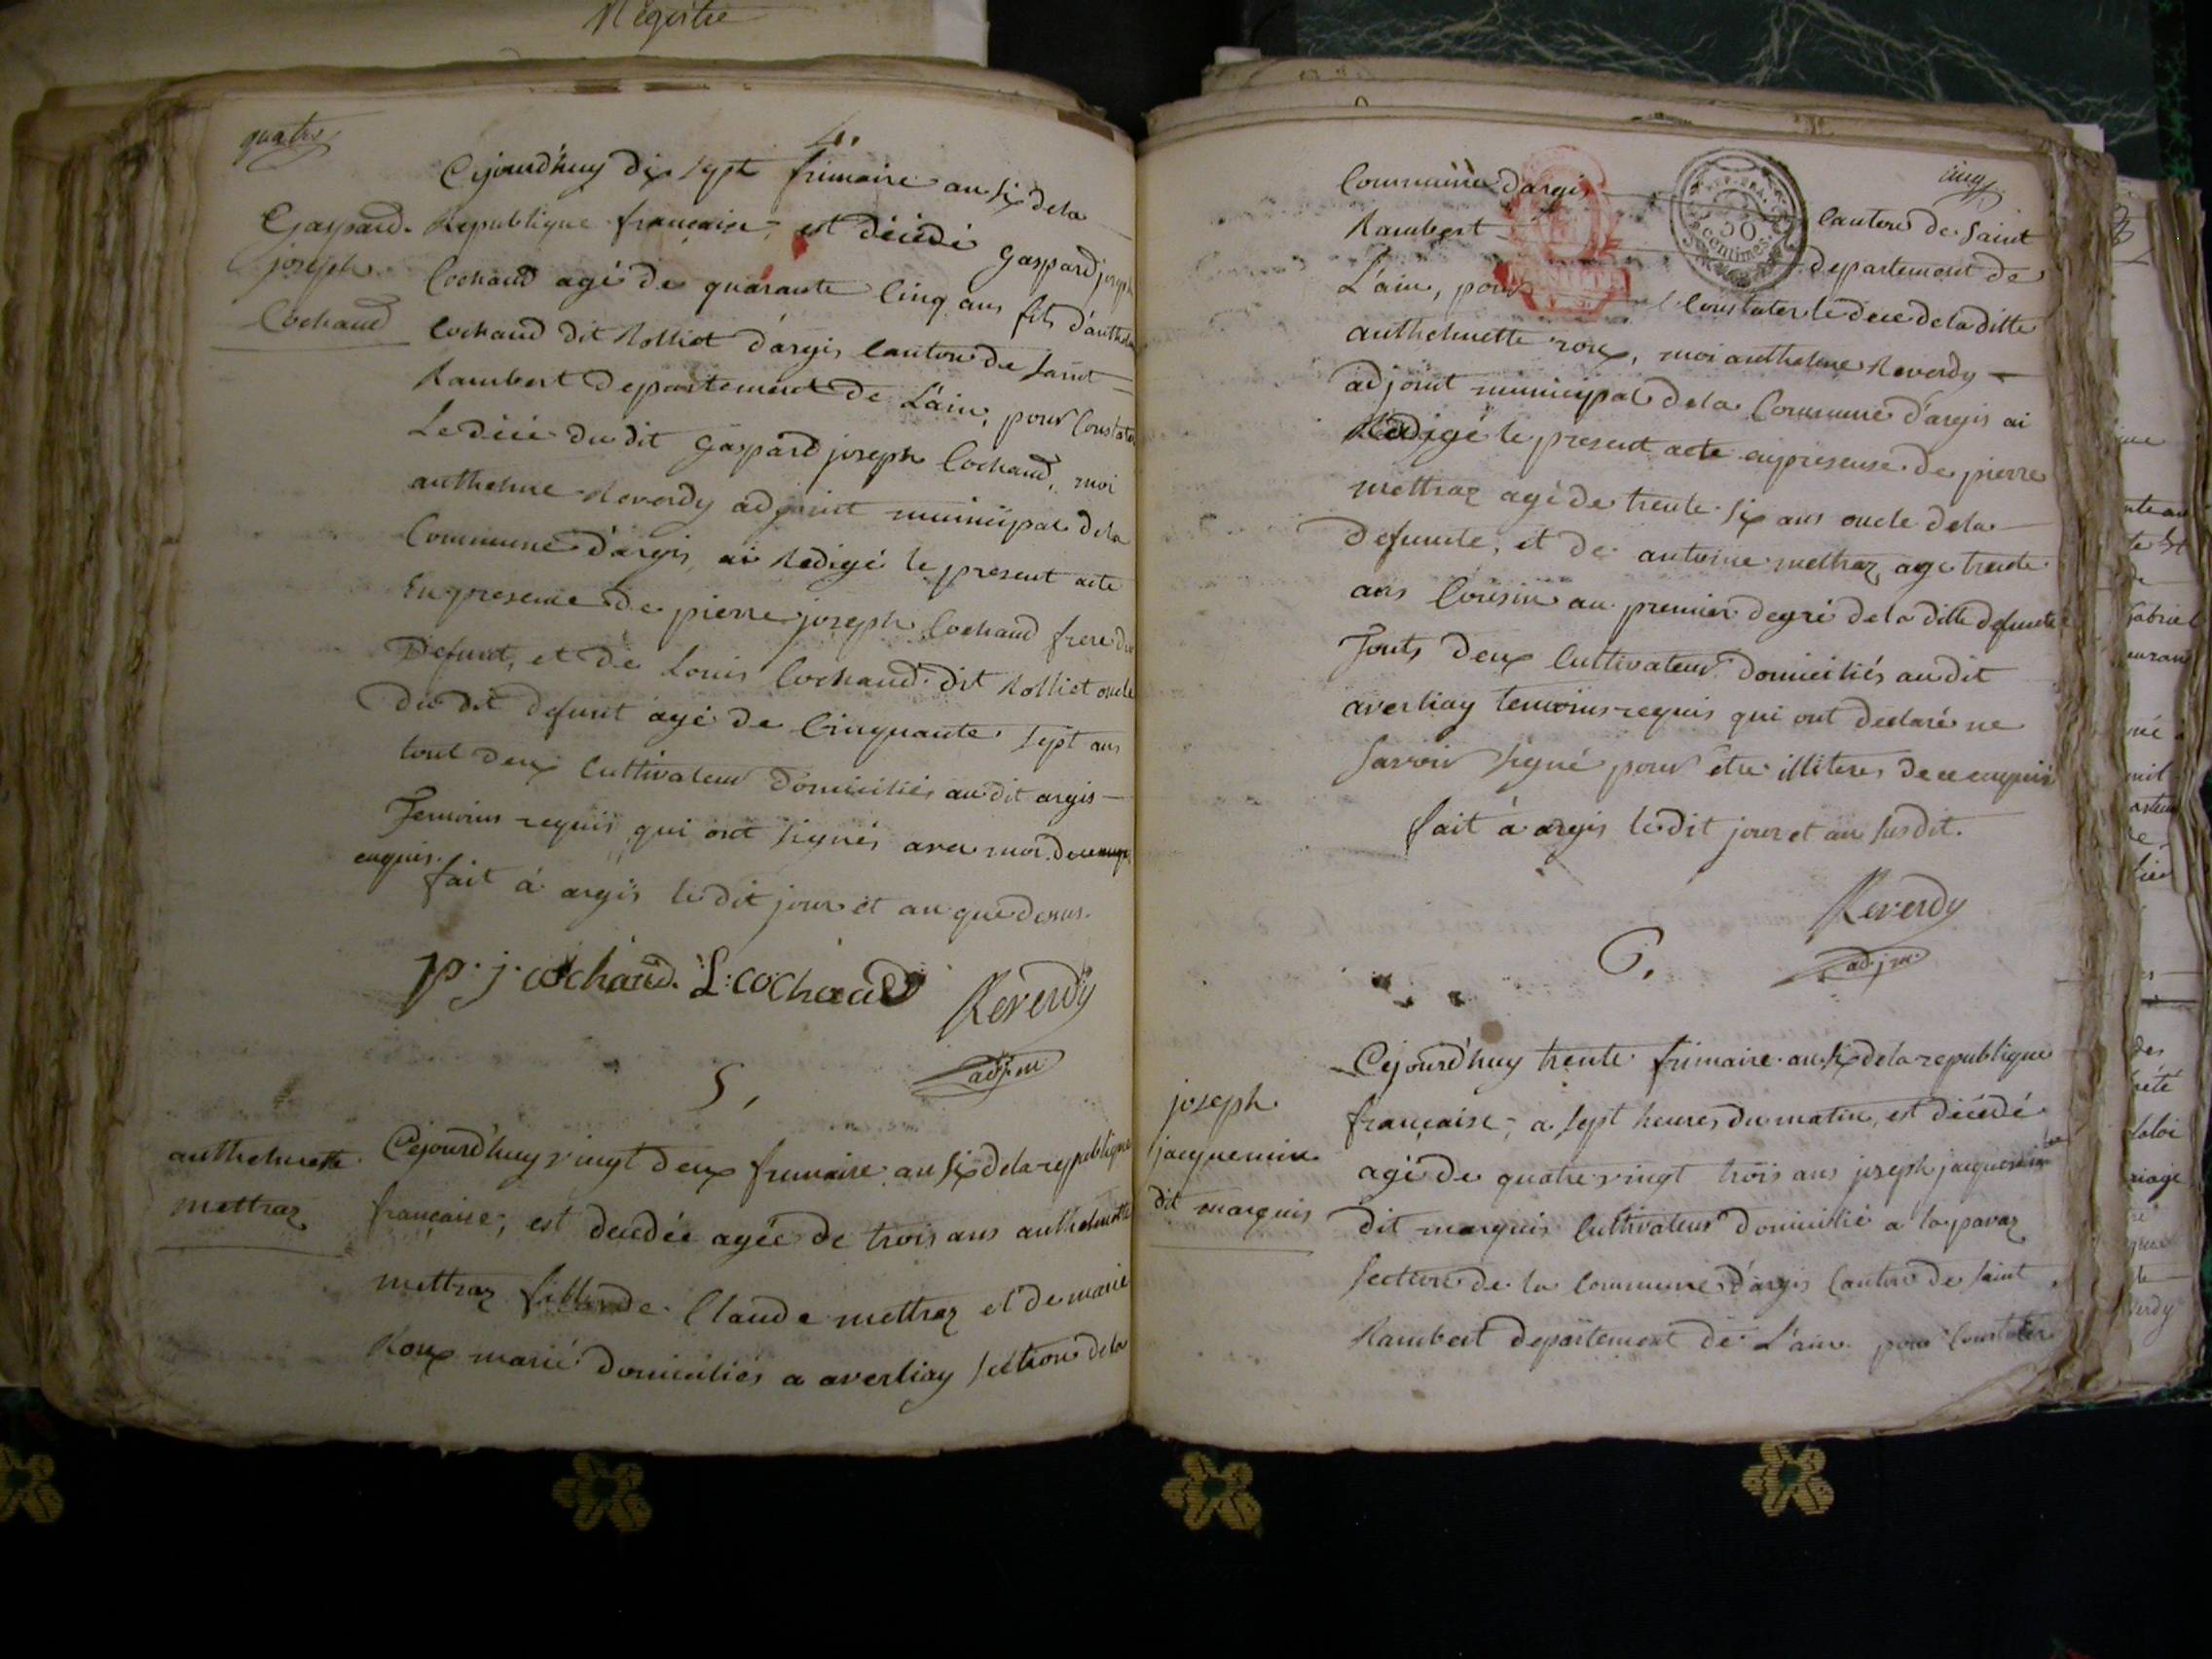 Registre
quatre
4.
Cejourd'huy dix sept frimaire an six de la
Gaspard
joseph
Cochaud
Republique francaise, est décédé Gaspard joseph
Cochaud agé de quarante Cinq ans fils d'anthelme
Cochaud dit Rolliet d'argis Canton de Saint
Rambert departement de L'ain, pour Constater
Le décé du dit Gaspard joseph Cochaud, moi
anthelme Reverdy adjoint municipal de la
Commune d'argis, ai Redigé le present acte
En presence de pierre joseph Cochaud frere du
Defunt, et de Louis Cochaud dit Rolliet oncle
du dit defunt agé de Cinquante sept ans
tout deux Cultivateur domiciliés au dit argis
Temoins requis qui ont signés avec moi de ce
enquis.
fait à argis le dit jour et an que dessus.
p. j. cochaud. L: cochaud
Reverdy
adj. m
5,
anthelmette
mettraz
Cejourd'huy vingt deux frimaire an six de la republique
francaise, est decedée agée de trois ans anthelmette
mettraz fille de Claude mettraz et de marie
Roux marié domiciliés a averliay section de la
cinq
Commune d'argis Canton de Saint
Rambert departement de
L'ain, pour Constater le décé de la ditte
50
centimes
anthelmette roux, moi anthelme Reverdy
adjoint municipal de la Commune d'argis ai
Redigé le present acte en presence de pierre
mettraz agé de trente six ans oncle de la
Defunte, et de antoine mettraz agé trente
ans Cousin au premier degré de la ditte defunte
Touts deux Cultivateur domiciliés au dit
averliay temoins requis qui ont declaré ne
savoir signé pour être illiteres de ce enquis
fait à argis le dit jour et an susdit.
Reverdy
adj. m.
6,
joseph
jacquemin
dit marquis
Cejourd'huy trente frimaire an six de la republique
française, a sept heures du matin, est décédé
agé de quatre vingt trois ans joseph jacquemin
dit marquis Cultivateur domicilié a la pavaz
Section de la Commune d'argis Canton de Saint
Rambert departement de L'ain pour Constater